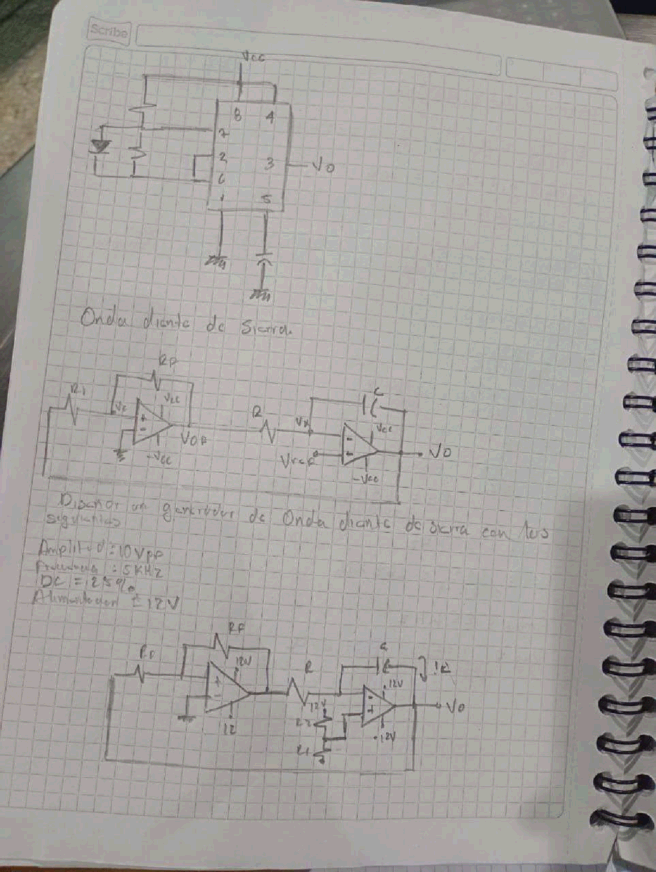 Scribe
Vcc
8 4
7
2 3 Vo
6
1 5
Onda diente de Sierra.
RF
R1 Vcc C
R Vx Vcc
Vref Vo
-Vcc -Vcc
Diseñar un generador de Onda diente de sierra con las
siguientes
Amplitud = 10 Vpp
Frecuencia = 5 KHz
DC = 25%
Alimentacion ± 12 V
RF
12V R 12V
12V Vo
12 R1 -12V